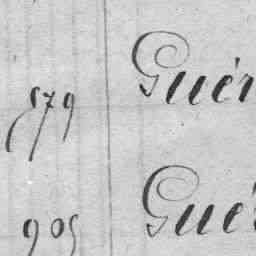 879 Guér
905 Gué